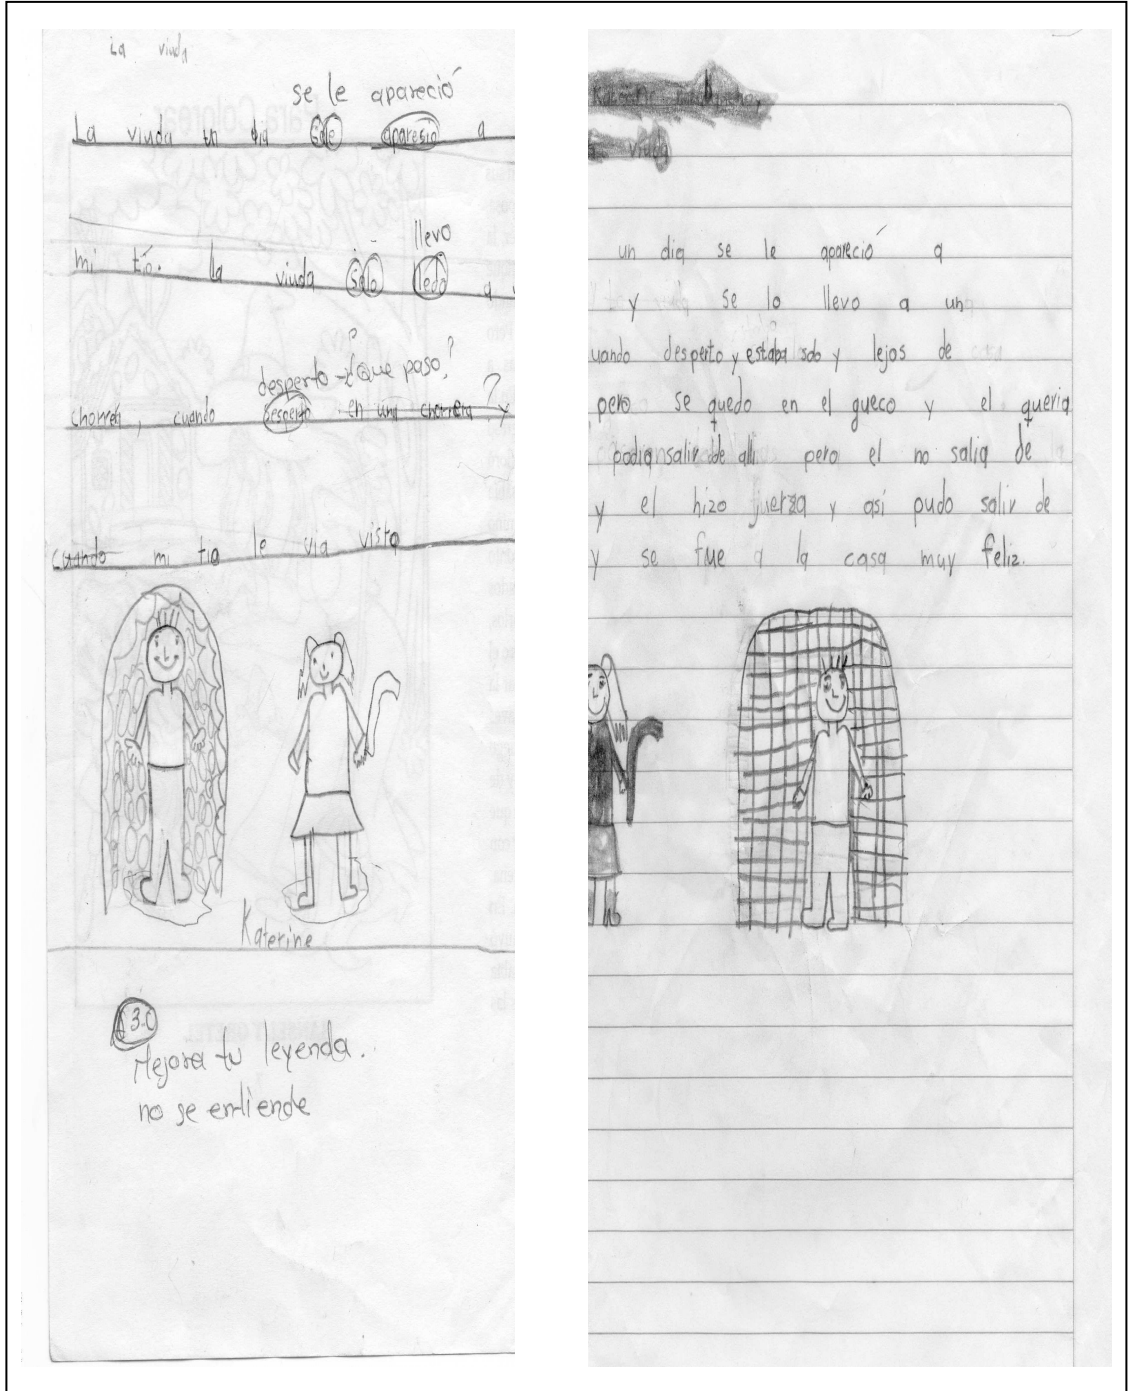 La viuda
se le apareció
La viuda un dia sele aparesio a
llevo
mi tío. la viuda solo lledo a
desperto ¿Que paso?
chorrea, cuando desperto en una chorrera ? y
cuando mi tio le via visto
Katerine
3.0
Mejora tu leyenda.
no se entiende
viuda
un dia se le apareció a
y se lo llevo a un
uando desperto y estaba solo y lejos de casa
pero se quedo en el gueco y el queria
podian salir de alli pero el no salia de
y el hizo juerza y así pudo salir de
y se fue a la casa muy feliz.